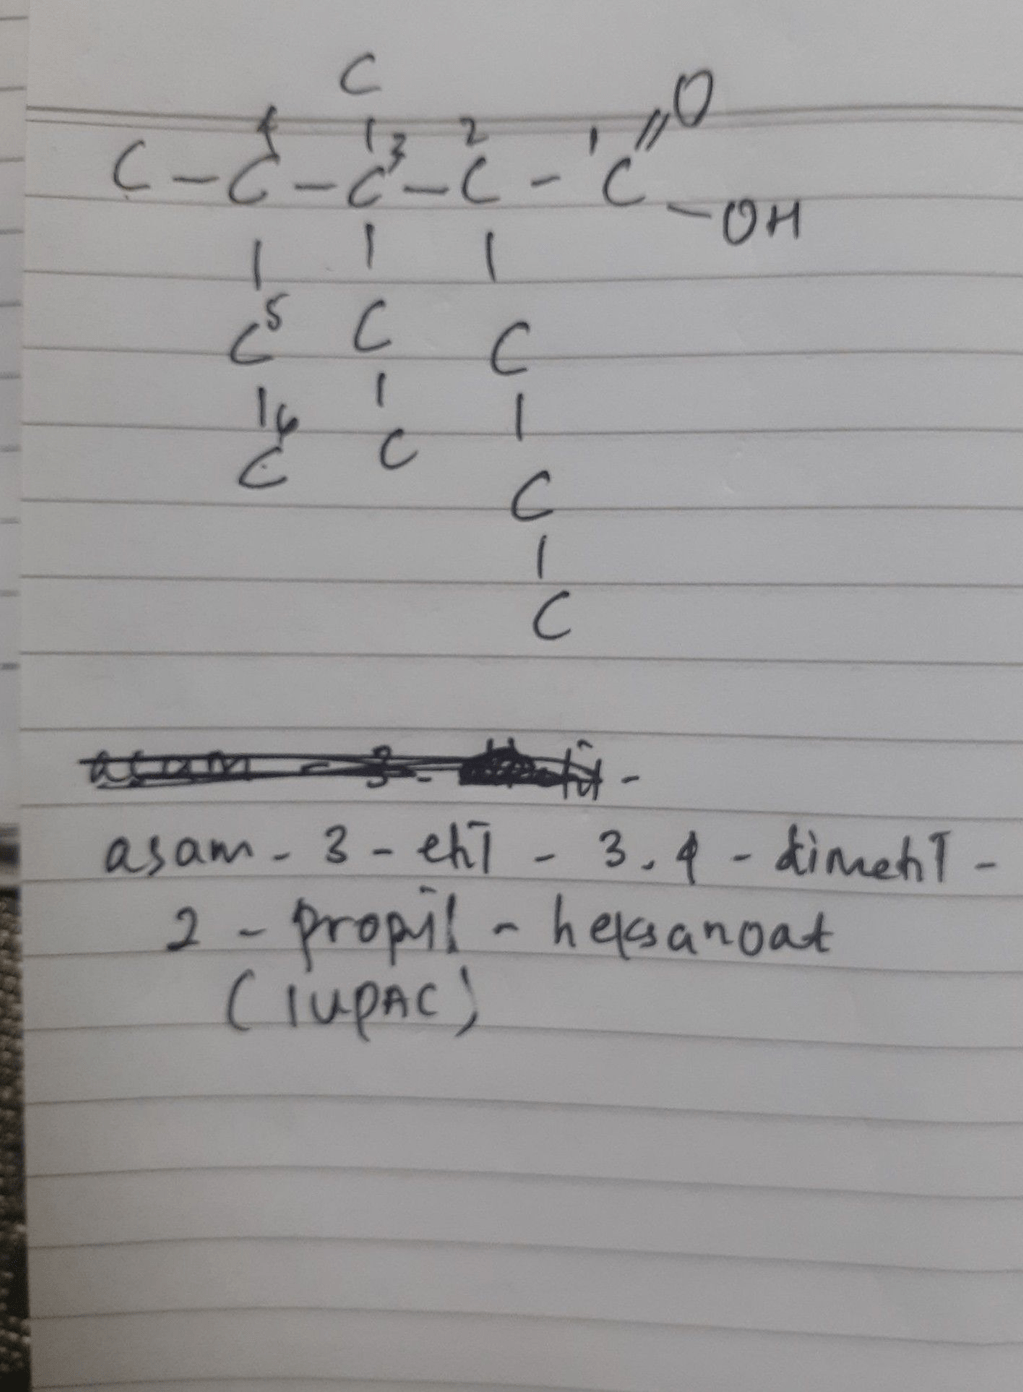 C
C - C 4 - C 3 - C 2 - C 1 // O
- OH
C 5 C C
C 6 C C
C
asam - 3 -
asam - 3 - etil - 3,4 - dimetil -
2 - propil - heksanoat
(IUPAC)